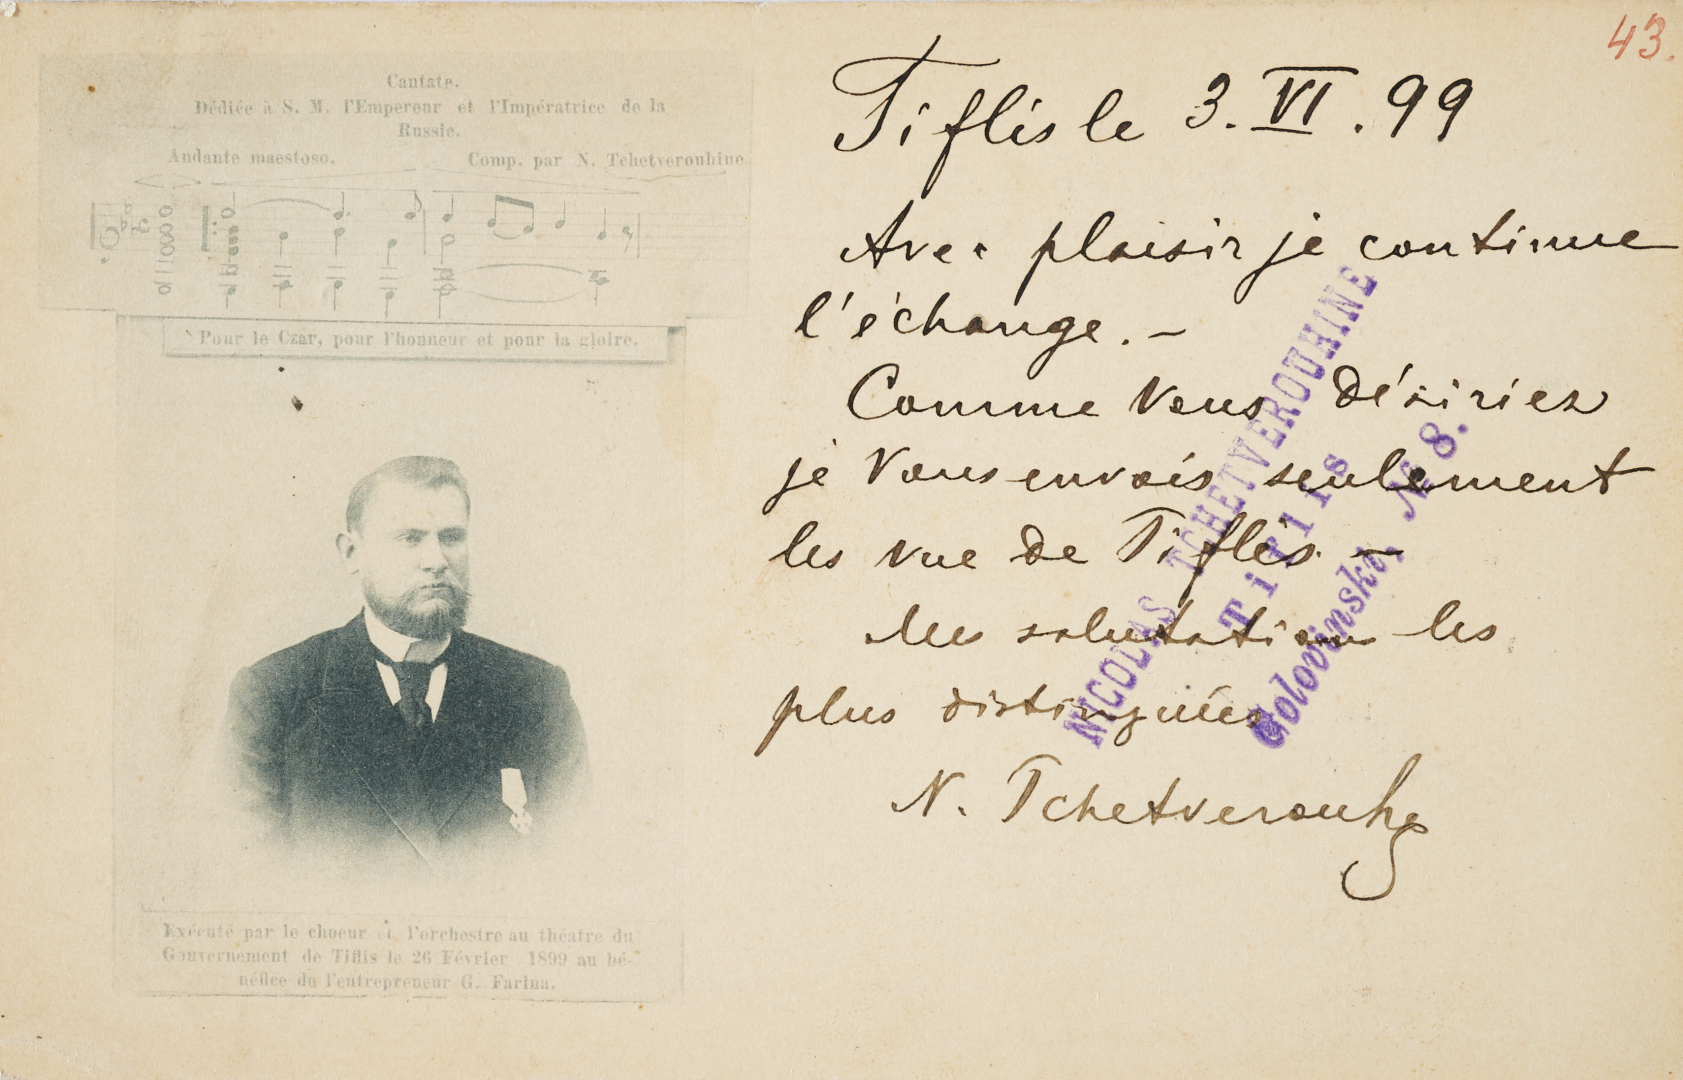 43.
Cantate.
Dédiée à S. M. l'Empereur et l'Impératrice de la
Russie.
Andante maestoso. Comp. par N. Tchetverouhine
Pour le Czar, pour l'honneur et pour la gloire.
Exécuté par le choeur et l'orchestre au théatre du
Gouvernement de Tiflis le 26 Février 1899 au bé-
néfice du l'entrepreneur G. Farina.
Tiflis le 3. VI. 99
Avec plaisir je continue
l'échange. –
Comme Vous Désiriez
je Vous envois seulement
les vue de Tiflis. –
Mes salutation les
plus distinguées
N. Tchetverouh
NICOLAS TCHETVEROUHINE
Tiflis
Golovinski, № 8.